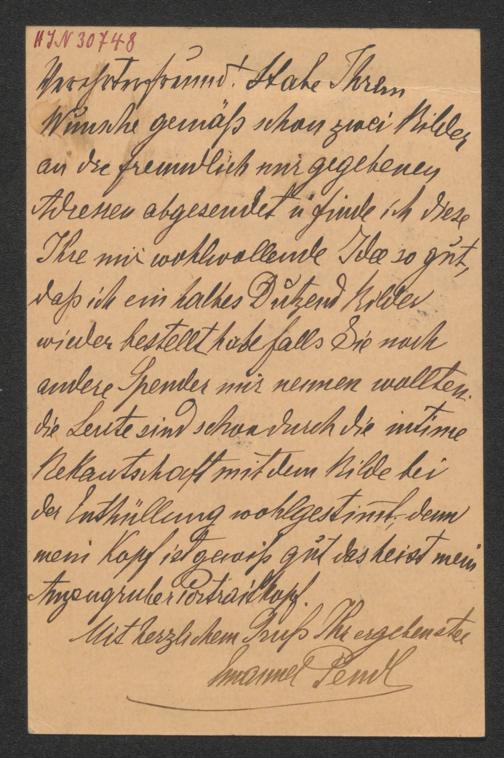 HJN 30748
Verehrter Freund! Habe Ihrem
Wunsche gemäß schon zwei Bilder
an die freundlich mir gegebenen
Adressen abgesendet u finde ich diese
Ihre mir wohlwollende Idee so gut,
daß ich ein halbes Dutzend Bilder
wieder bestellt habe falls Sie noch
andere Spender mir nennen wollten.
die Leute sind schon durch die intime
Bekantschaft mit dem Bilde bei
der Enthüllung wohlgestimt, denn
mein Kopf ist gewiß gut das heist mein
Anzengruber Portraitkopf
Mit herzlichem Gruß Ihr ergebenster
Emanuel Pendl